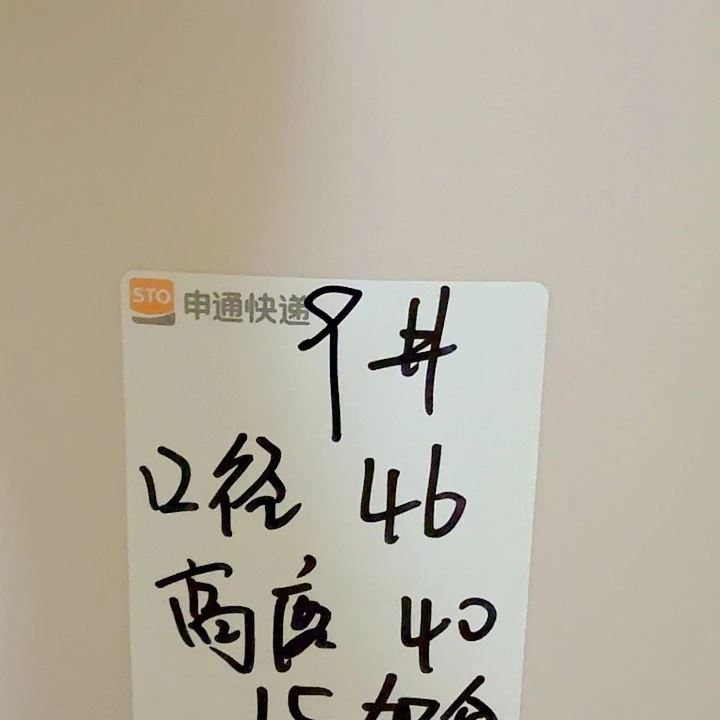 STO 申通快递
9#
口径 46
高度 40
15